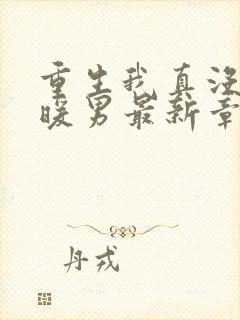 重生我真没
暖男最新章
丹戎